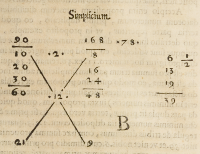 Simplicium
90 ·2· 168 ·78·
10 8 6 1/2
20 16 13
30 24 19
60 ·12· 48 39
B
21 9